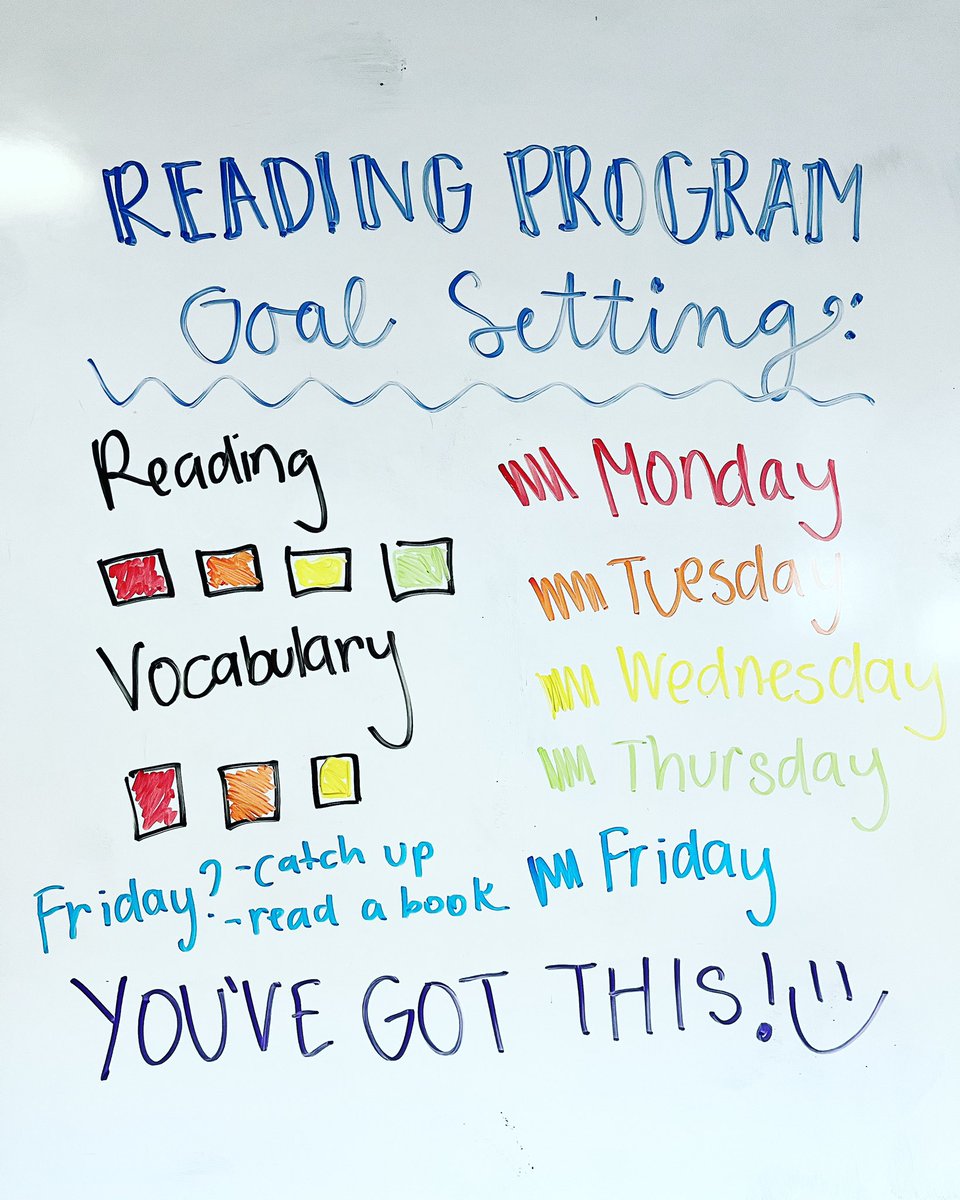 READING PROGRAM
Goal Setting:
Reading
Vocabulary
Friday? -catch up
-read a book
Monday
Tuesday
Wednesday
Thursday
Friday
YOU'VE GOT THIS!